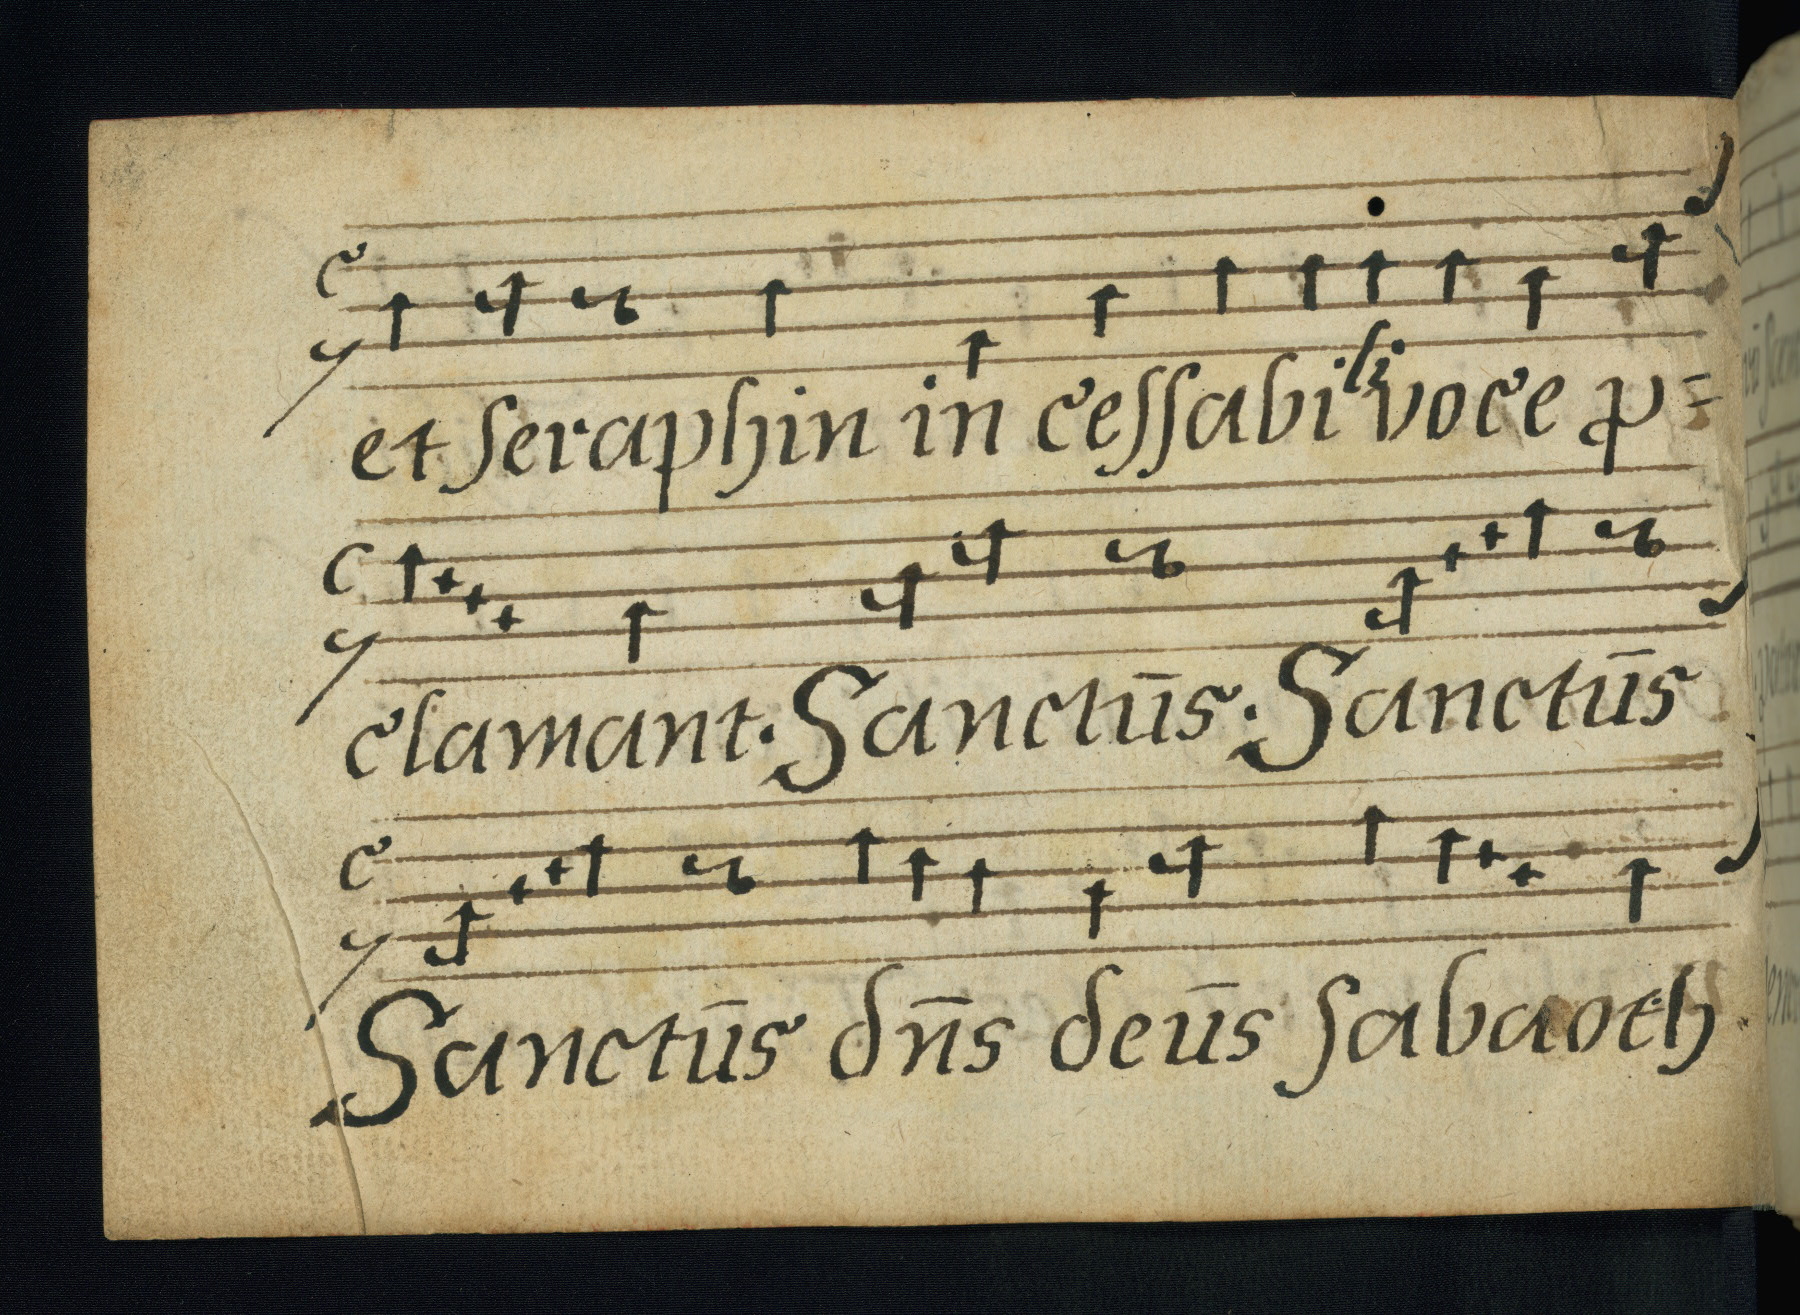 et seraphin in cessabili voce p=
clamant. Sanctūs. Sanctūs
Sanctūs dn̄s deūs sabaoth.